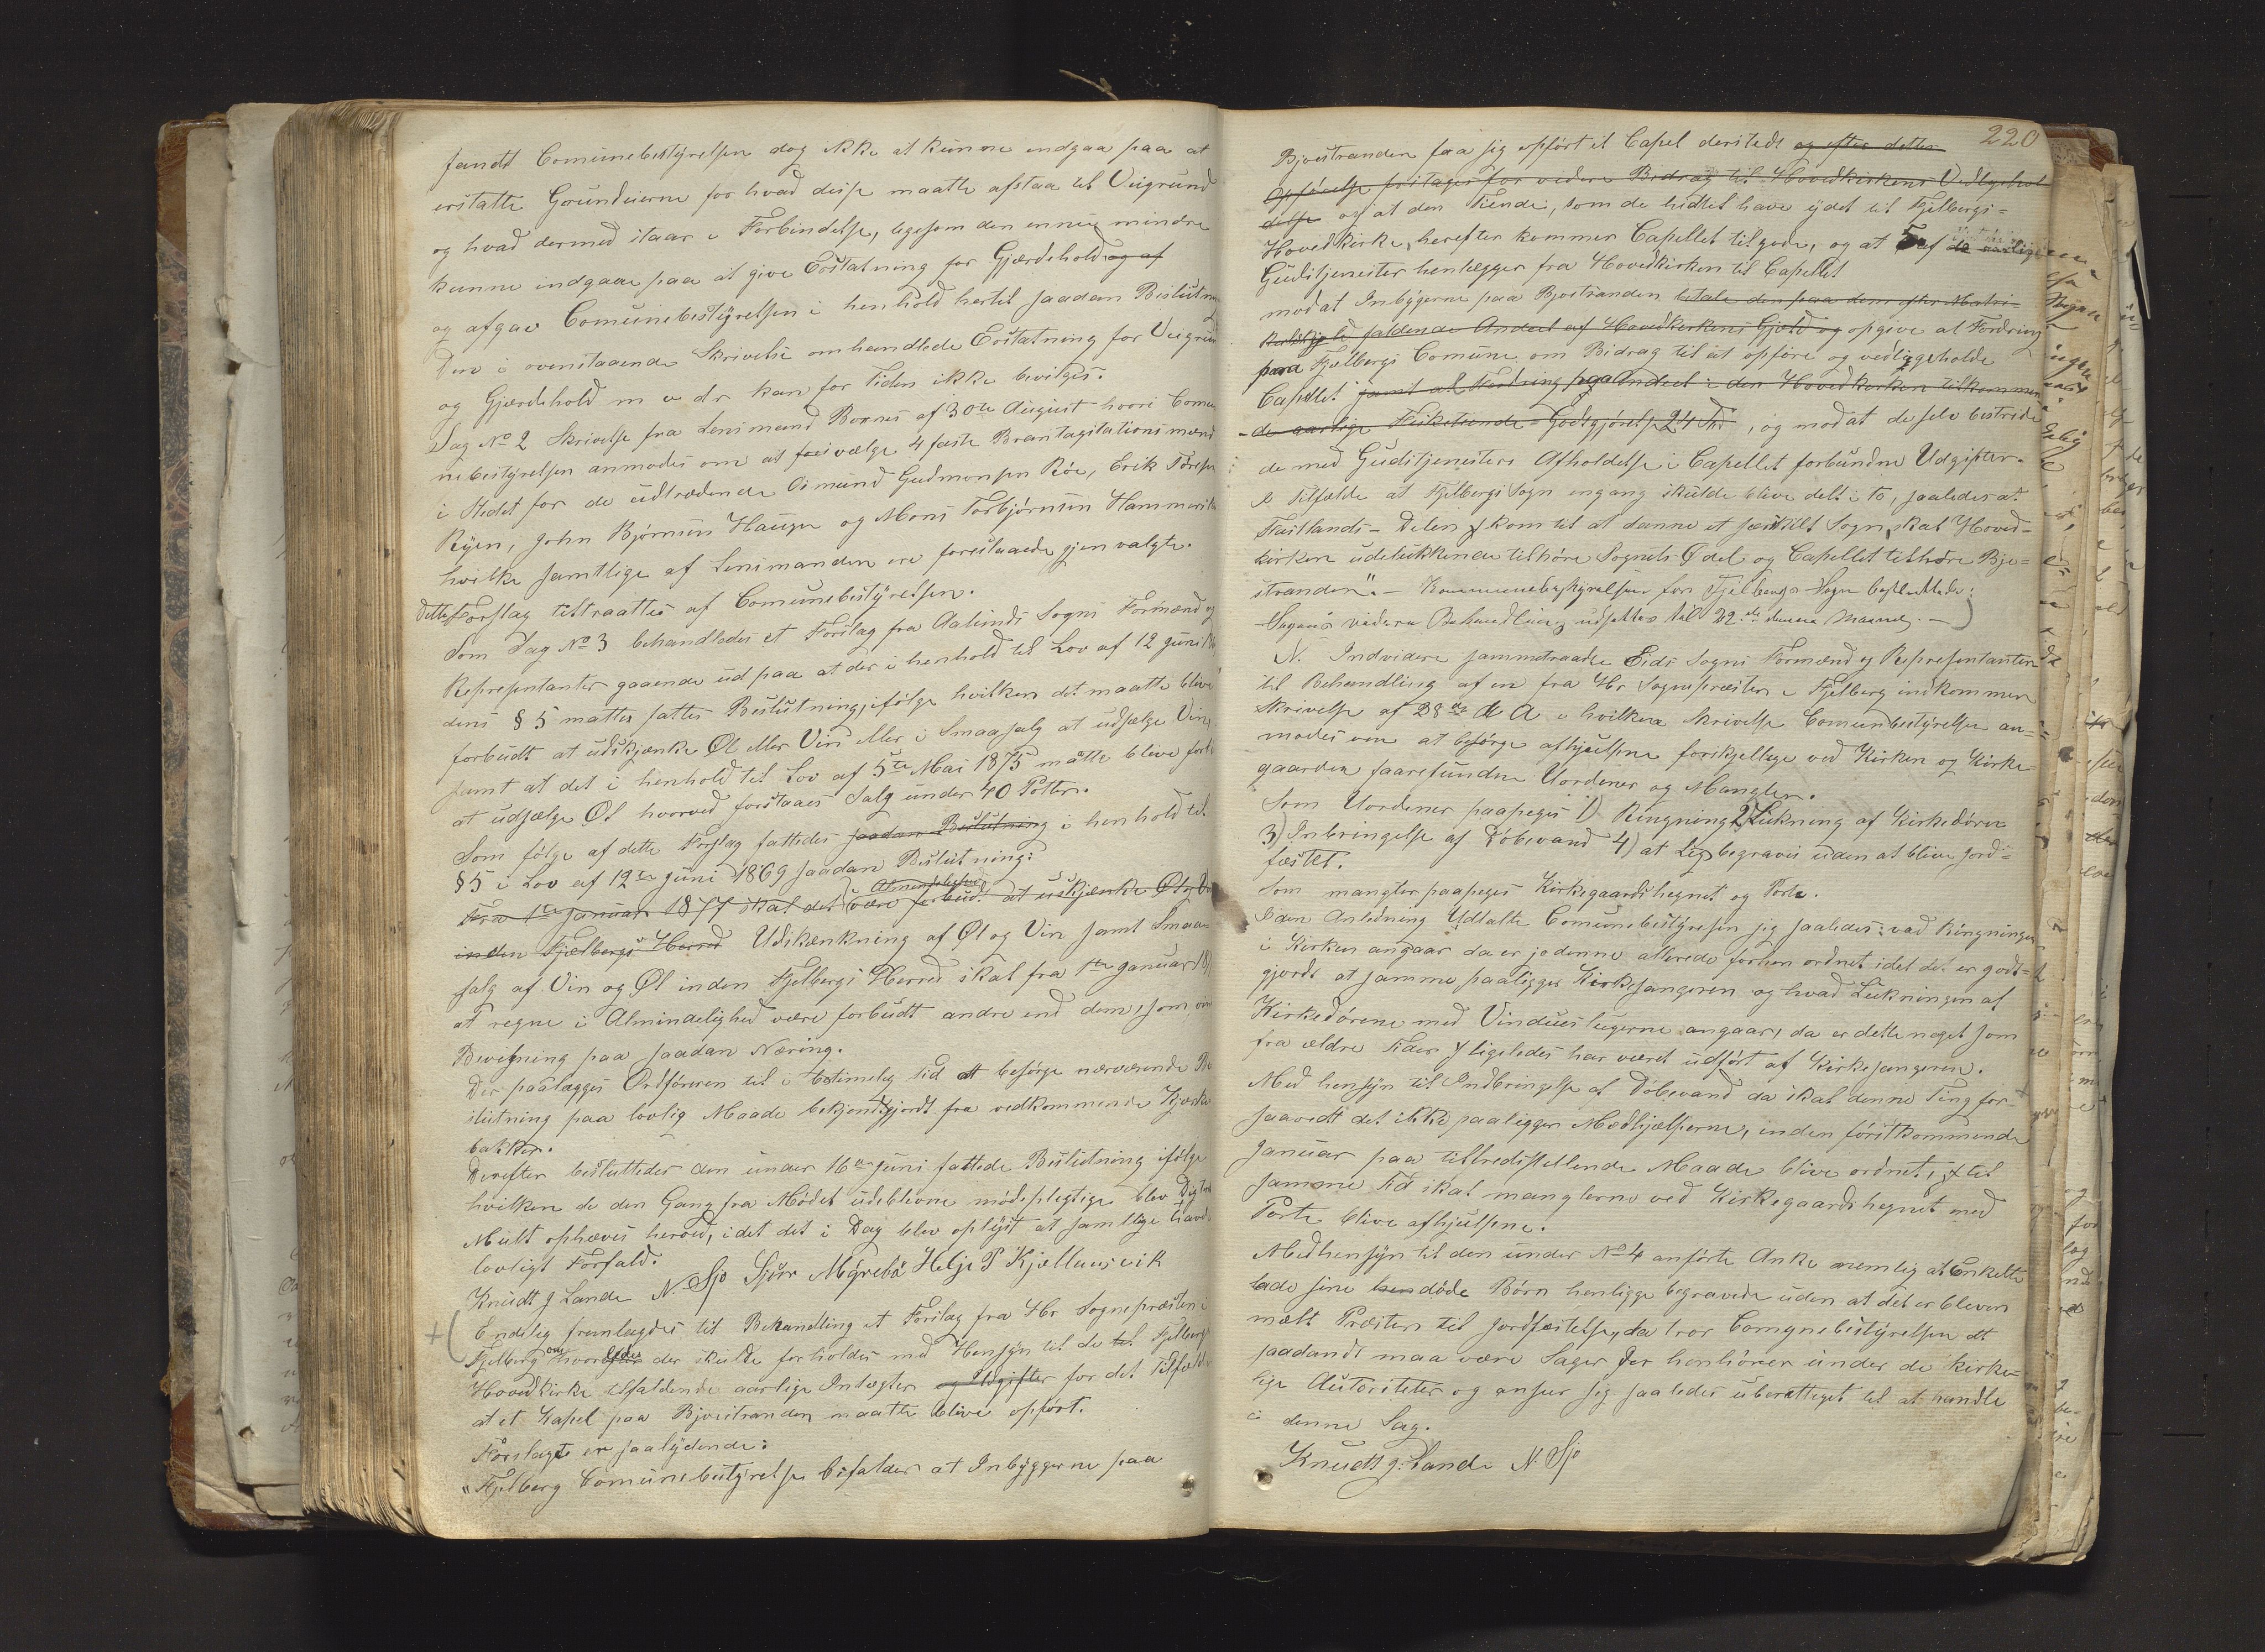 fandt Comunebestyrelsen dog ikke at kunne indgaa paa at
erstatte Grundeierne for hvad disse maatte afstaa til Veigrund
og hvad dermed staar i Forbindelse, ligesom den ennu mindre
kunne indgaa paa at give Erstatning for Gjærdehold og af
og afgav Comunebestyrelsen i henhold hertil saadan Beslutn
Den i ovenstaaende Skrivelse omhandlede Erstatning for Veigrun
og Gjærdehold m v dr kan for Tiden ikke bevilges.
Sag No 2 Skrivelse fra Lensmand Boxnes af 30te August hvori Comu
nebestyrelsen anmodes om at vælge 4 faste Brantagstationsmænd
i Stedet for de udtrædende Osmund Gudmonsen Röe, Erik Tores
Ryen, John Björnsen Haugen og Mons Torbjörnsen Hammers
hvilke samtlige af Lensmanden ere foreslaaede gjenvalgte.
dette Forslag tiltraattes af Comunebestyrelsen.
Som Sag No 3 behandledes et Forslag fra Aalunds Sogns Formænd og
Representanter gaaende ud paa at der i henhold til Lov af 12 Juni
dens § 5 mattes fattes Beslutning, ifölge hvilken det maatte blive
forbudt at udskjænke Öl eller Vin eller i Smaasalg at udsælge Vin,
samt at det i henhold til Lov af 5te Mai 1875 måtte blive forb
at udsælge Öl hvorved forstaaes Salg under 40 Potter.
Som fölge af dette Forslag fattedes saadan Beslutning i henhold til
§ 5 i Lov af 12te Juni 1869 saadan Beslutning:
Fra 1te Januar 1877 skal det være forbudt at udskjænke Öl og V
inden Fjælbergs Herred Udskænkning af Öl og Vin samt Smaa
salg af Vin og Öl inden Fjelbergs Herred skal fra 1te Januar 18
at regne i Almindelighed være forbudt andre end dem, som
Bevisning paa saadan Næring.
Der paalægges Ordföreren til i betimelig tid at besörge nærværende Be
slutning paa lovlig Maade bekjendtgjordt fra vedkommende Kjærke
bakker.
Derefter besluttedes den under 16de Juni fattede Beslutning ifölge
hvilken de den Gang fra Mödet udeblevne mödepligtige blev
Mult ophæves herved, idet det i Dag blev oplyst at samtlige havde
lovligt Forfald.
Knudt J Lande N. Sjo Sjur Myrebö Helje P Kjellesvik
Endelig fremlagdes til Behandling et Forslag fra Hr Sognepresten i
Fjelberg om hvorledes der skulde forholdes med Hensyn til de til Fjelbergs
Hovedkirke tilfaldende aarlige Intægter og Udgifter for det Tilfælde
at et Kapel paa Bjoestranden maatte blive opfört.
Forslaget er saalydende:
"Fjelberg Comunebestyrelse bifalder at Inbyggerne paa
220
Bjoestranden faa sig opfört et Capel dersteds og efter dettes
Opförelse fritages for videre Bidrag til Hovedkirkens Vedligehol
delse og at den Tiende, som de hidtil have ydet til Fjelbergs-
Hovedkirke, herefter kommer Capellet tilgode, og at 5 af de
Gudstjenester henlægges fra Hovedkirken til Capellet
mod at Inbygerne paa Bjostranden betale den paa dem efter Matri-
kulskyld faldende Andeel af Hovedkirkens Gjæld og opgive al Fordring
paa Fjelbergs Comune om Bidrag til at opföre og vedligeholde
Capellet samt al Fordring paa Andeel i den Hovedkirken tilkommen
de aarlige Fisketiende-Godtgjörelse 24 Sk, og mod at de selv bestride
de med Gudstjenesters Afholdelse i Capellet forbundne Udgifter.
I Tilfælde at Fjelbergs Sogn engang skulde blive delt i to, saaledes at
Fastlands-Delen kom til at danne et særskilt Sogn, skal Hoved-
kirken udelukkende tilhöre Sognets Ödel og Capellet tilhöre Bjo-
stranden". – Kommunebestyrelsen for Fjelbergs Sogn besluttede:
Sagens videre Behandling udsættes til 22de denne Maaned. –
N. Indvidere sammetraadte Eids Sogns Formænd og Representanter
til Behandling af en fra Hr Sognepræsten i Fjelberg indkommen
Skrivelse af 28de d A i hvilken Skrivelse Comunbestyrelsen an-
modes om at besörge afhjulpne forskjellige ved Kirken og Kirke-
gaarden forefundne Uordener og Mangler.
Som Uordener paapeges 1) Ringning 2) Lukning af Kirkedören
3) Inbringelse af Döbevand 4) at Lig begraves uden at blive jord-
fæstet.
Som mangler paapeges Kirkegaardshegnet og Porte.
I den Anledning Udtalte Comunebestyrelsen sig saaledes: vad Ringningen
i Kirken angaar da er jo denne allerede forhen ordnet idet det er godt-
gjordt at samme paaligger Kirkesangeren og hvad Lukningen af
Kirkedörene med Vindueslugerne angaar, da er dette noget som
fra ældre tider ligeledes har været udfört af Kirkesangeren.
Med hensyn til Indbringelse af Döbevand da skal denne Ting for-
saavidt det ikke paaligger Medhjælperne, inden förstkommende
Januar paa tilfredsstillende Maade blive ordnet, til
samme Tid skal manglerne ved Kirkegaardshegnet med
Porte blive afhjulpne.
Medhensyn til den under No 4 anförte Anke nemlig at Enkelte
lade sine döde Börn henligge begravede uden at det er bleven
mælt Præsten til Jordfæstelse, da tror Comunebestyrelsen at
saadandt maa være Sager der henhörer under de kirke-
lige Autoriteter og anseer sig saaledes uberettiget til at handle
i denne Sag.
Knudt J. Lande N. Sjo